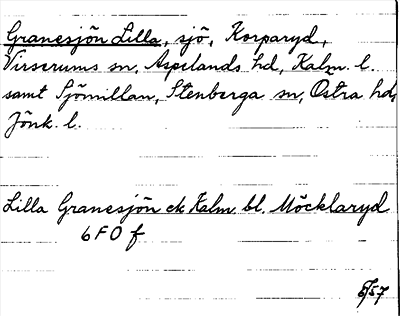 Granesjön Lilla, sjö, Korparyd,
Virserums sn, Aspelands hd, Kalm. l.
samt Sjömillan, Stenberga sn, Östra hd,
Jönk. l.
Lilla Granesjön ek Kalm. bl. Möcklaryd
6 F 0 f
5/57